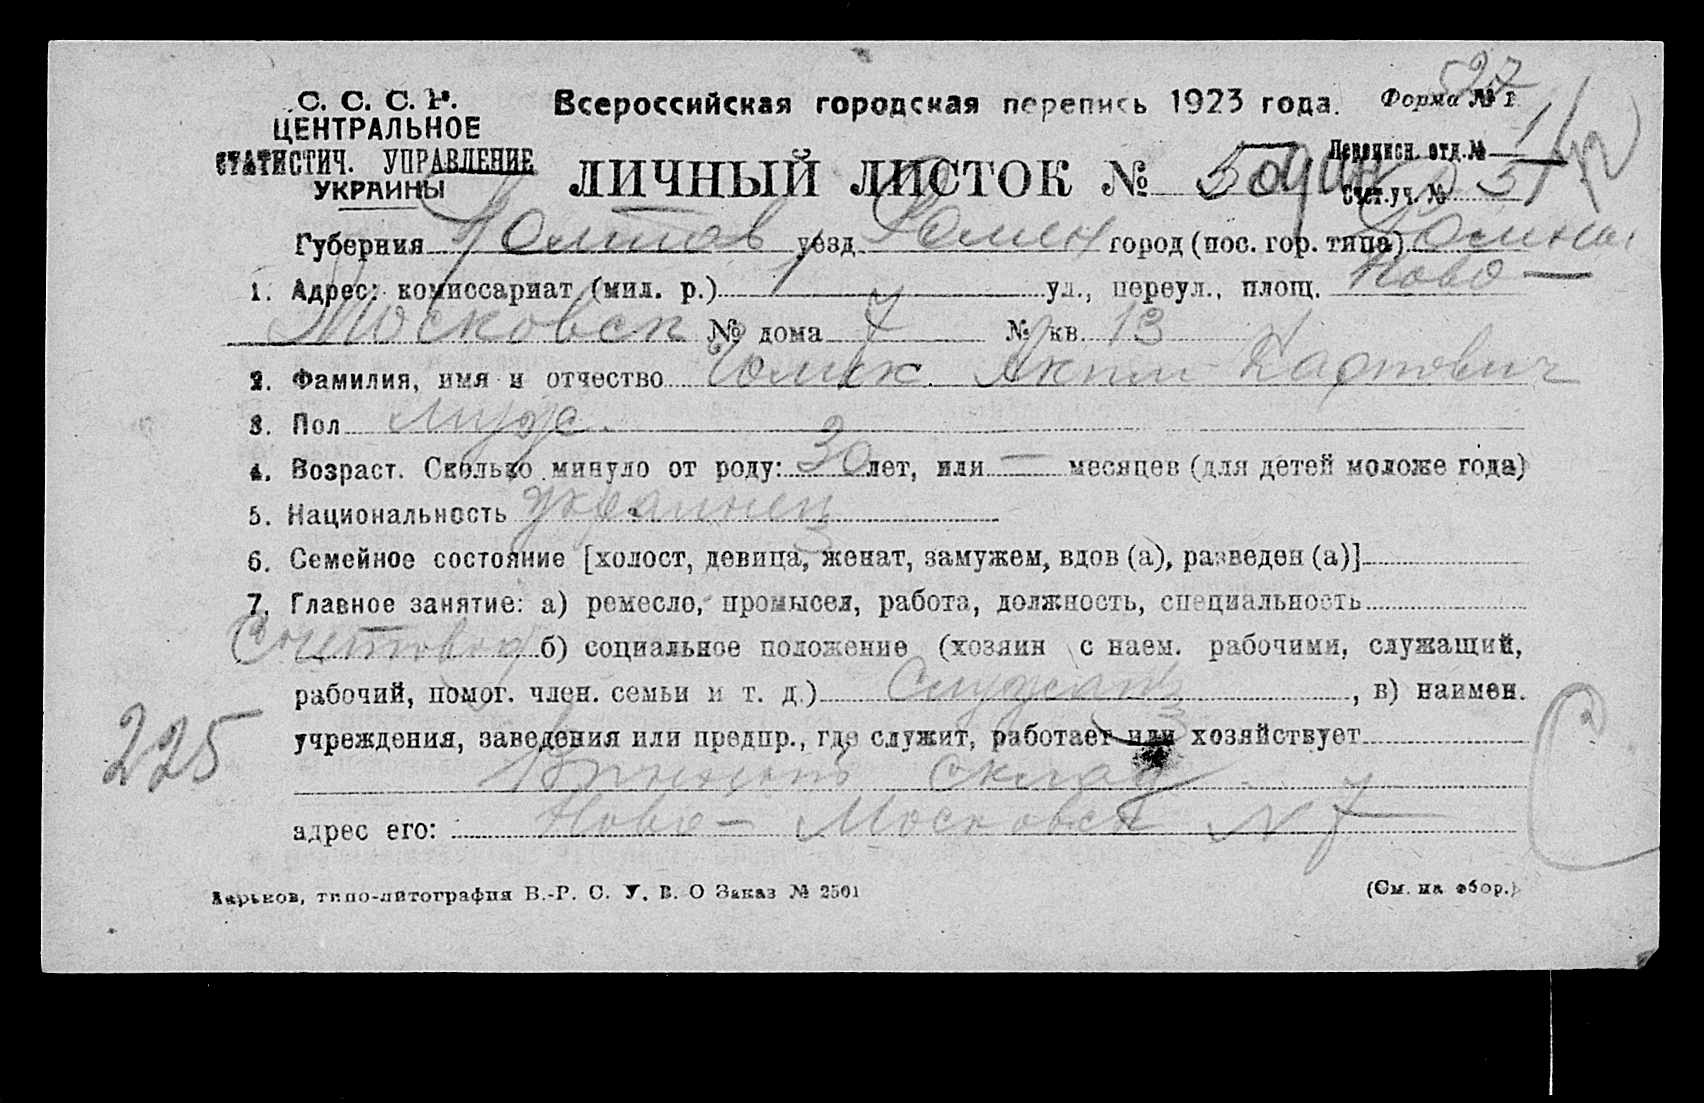 С. С. С. Р.
ЦЕНТРАЛЬНОЕ
СТАТИСТИЧ. УПРАВЛЕНИЕ
УКРАИНЫ
Всероссийская городская перепись 1923 года.
Форма № 1
527
ЛИЧНЫЙ ЛИСТОК №
Переписн. отд. № 1
Счет. уч. № 31
Губерния Полтав уезд Ромен город (пос. гор. типа) Ромны
1. Адрес: комиссариат (мил. р.) 1 ул., переул., площ. Ново-
Московск № дома 7 № кв. 13
2. Фамилия, имя и отчество Карпович
3. Пол муж.
4. Возраст. Сколько минуло от роду: 30 лет, или — месяцев (для детей моложе года)
5. Национальность украинец
6. Семейное состояние [холост, девица, женат, замужем, вдов (а), разведен (а)]
7. Главное занятие: а) ремесло, промысел, работа, должность, специальность
Счетовод б) социальное положение (хозяин с наем. рабочими, служащий,
рабочий, помог. член. семьи и т. д.) Служащ , в) наимен.
учреждения, заведения или предпр., где служит, работает или хозяйствует
склад
адрес его: Ново-Московск N 7
225
С
Харьков, типо-литография В.-Р. С. У. В. О Заказ № 2501
(См. на обор.)